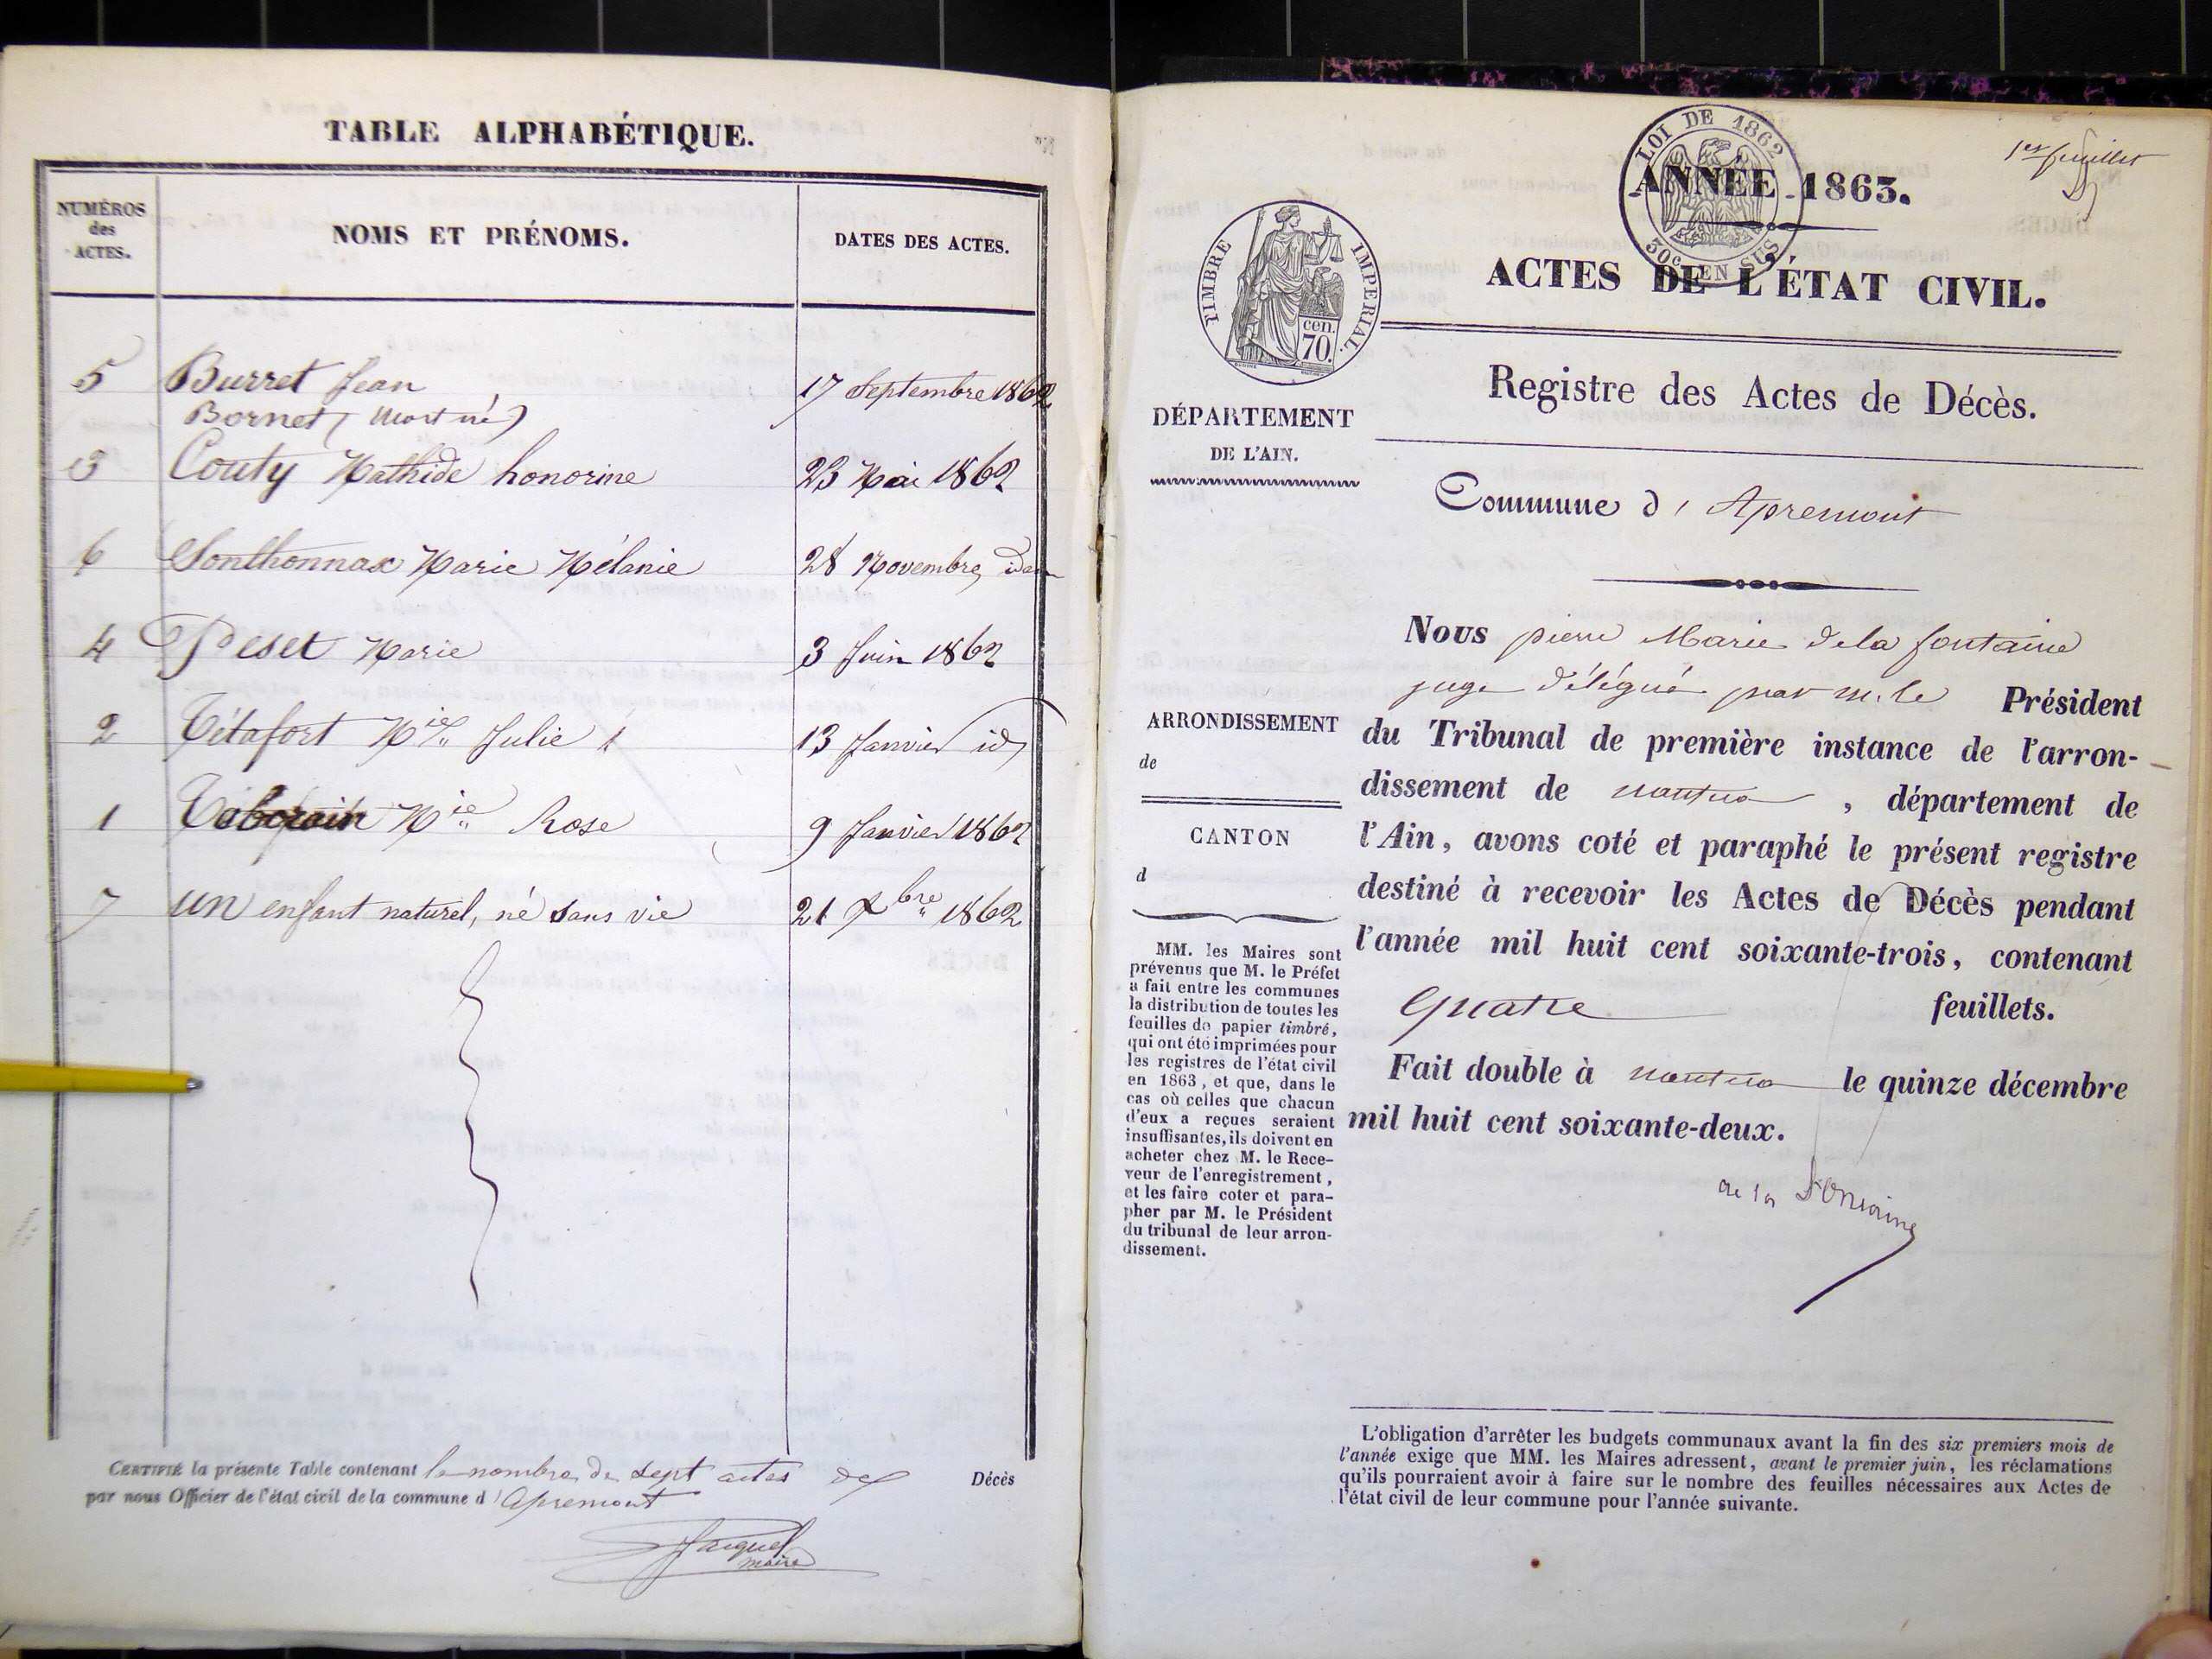 TABLE ALPHABÉTIQUE.
NUMÉROS
des
ACTES.
NOMS ET PRÉNOMS.
DATES DES ACTES.
5 Burret Jean 17 Septembre 1862
Bornet (mort né)
3 Couty Mathide honorine 23 Mai 1862
6 Sonthonnax Marie Mélanie 28 Novembre idem
4 Peset Marie 3 Juin 1862
2 Tétafort Mie Julie 13 Janvier id
1 Mie Rose 9 Janvier 1862
7 un enfant naturel, né sans vie 21 Xbre 1862
CERTIFIÉ la présente Table contenant le nombre de sept actes de Décès
par nous Officier de l'état civil de la commune d'Apremont
Jacquet
maire
1er feuillet
LOI DE 1862
30c EN SUS
ANNÉE 1863.
TIMBRE IMPERIAL.
cen.
70.
ACTES DE L'ÉTAT CIVIL.
Registre des Actes de Décès.
DÉPARTEMENT
DE L'AIN.
Commune d'Apremont
ARRONDISSEMENT
de
CANTON
d
MM. les Maires sont
prévenus que M. le Préfet
a fait entre les communes
la distribution de toutes les
feuilles de papier timbré,
qui ont été imprimées pour
les registres de l'état civil
en 1863, et que, dans le
cas où celles que chacun
d'eux a reçues seraient
insuffisantes, ils doivent en
acheter chez M. le Rece-
veur de l'enregistrement,
et les faire coter et para-
pher par M. le Président
du tribunal de leur arron-
dissement.
Nous pierre Marie de la fontaine
juge délégué par m. le Président
du Tribunal de première instance de l'arron-
dissement de nantua, département de
l'Ain, avons coté et paraphé le présent registre
destiné à recevoir les Actes de Décès pendant
l'année mil huit cent soixante-trois, contenant
quatre feuillets.
Fait double à nantua le quinze décembre
mil huit cent soixante-deux.
de la Fontaine
L'obligation d'arrêter les budgets communaux avant la fin des six premiers mois de
l'année exige que MM. les Maires adressent, avant le premier juin, les réclamations
qu'ils pourraient avoir à faire sur le nombre des feuilles nécessaires aux Actes de
l'état civil de leur commune pour l'année suivante.